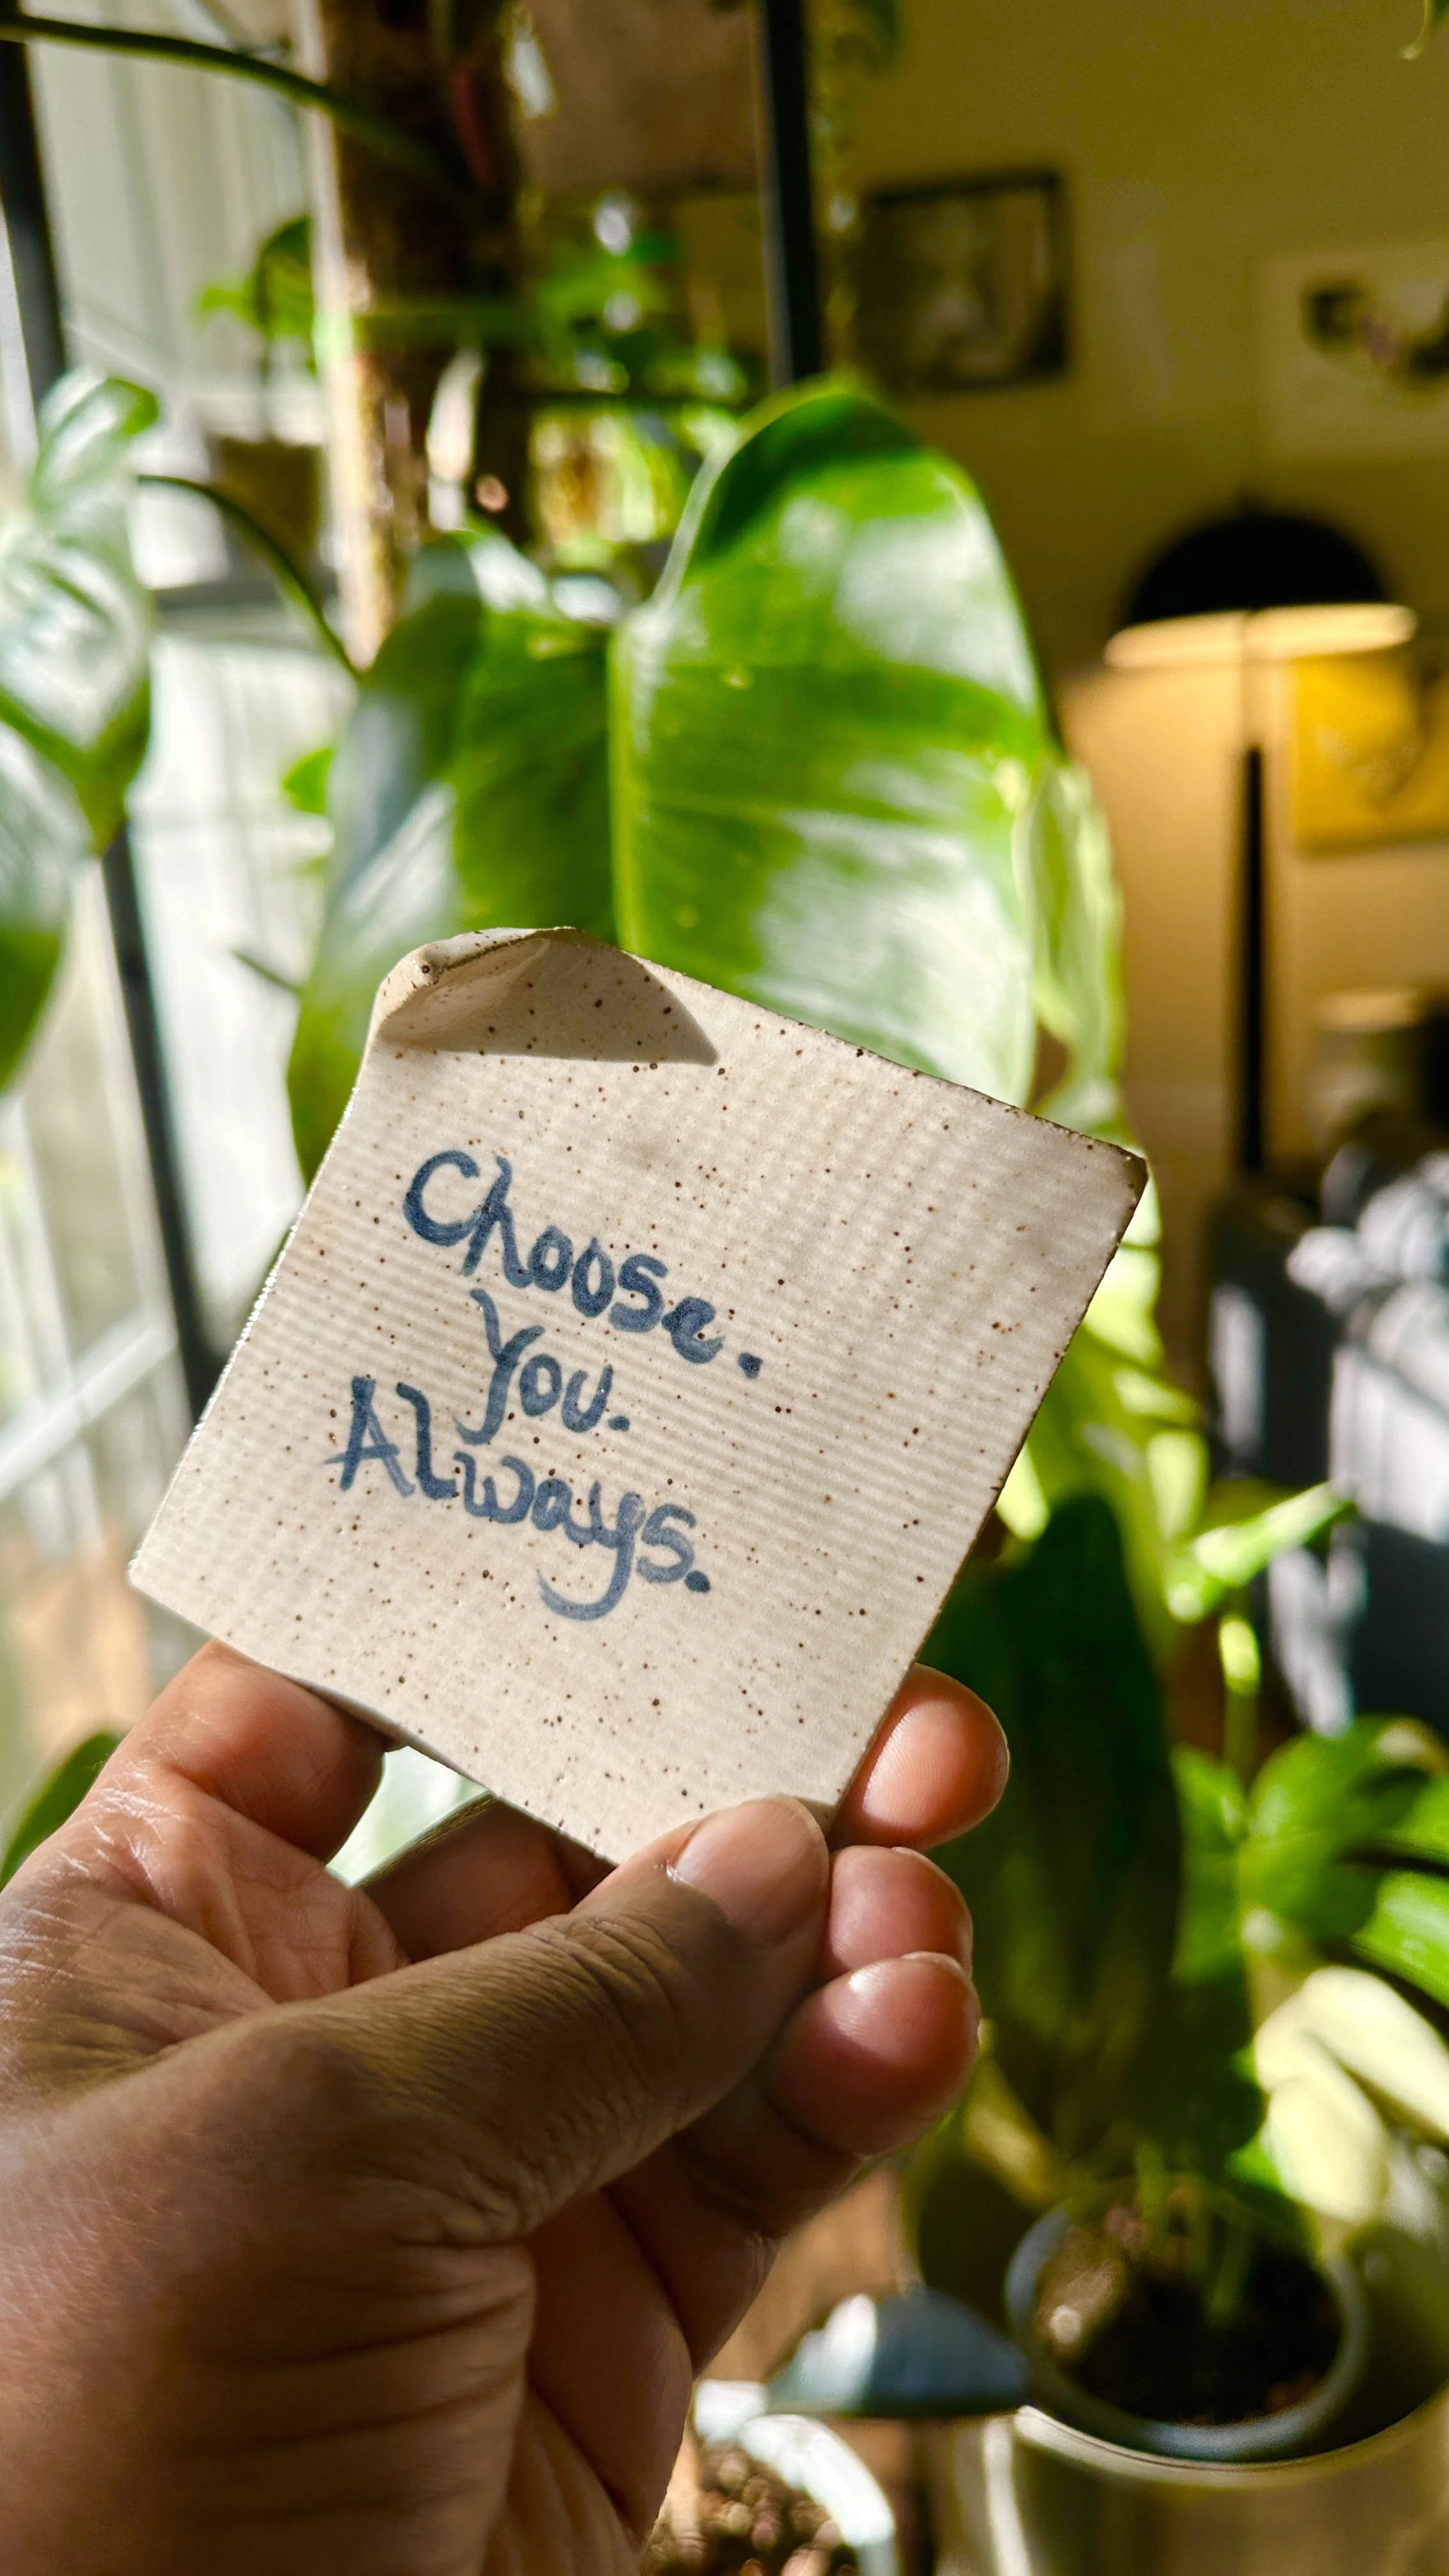 Choose.
You.
Always.